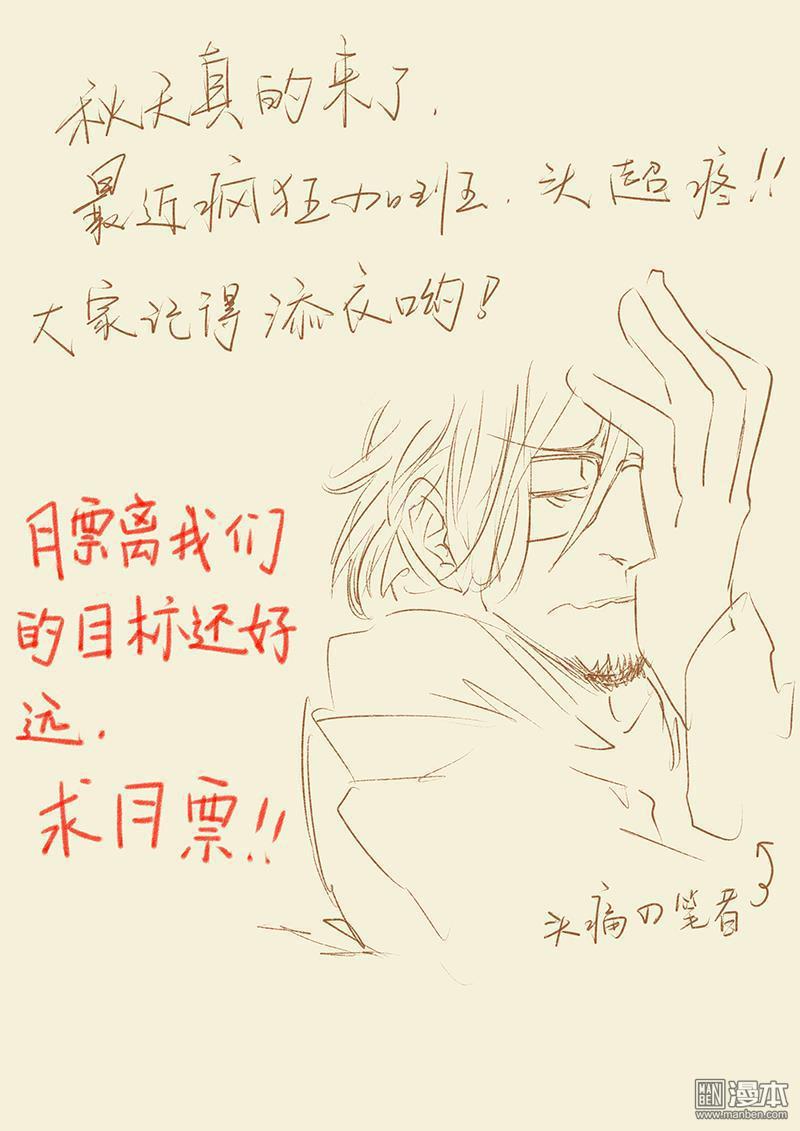 秋天真的来了.
最近疯狂加班.头超疼!!
大家记得添衣哟!
月票离我们
的目标还好
远.
求月票!!
头痛の笔者
MAN
BEN 漫本
www.manben.com